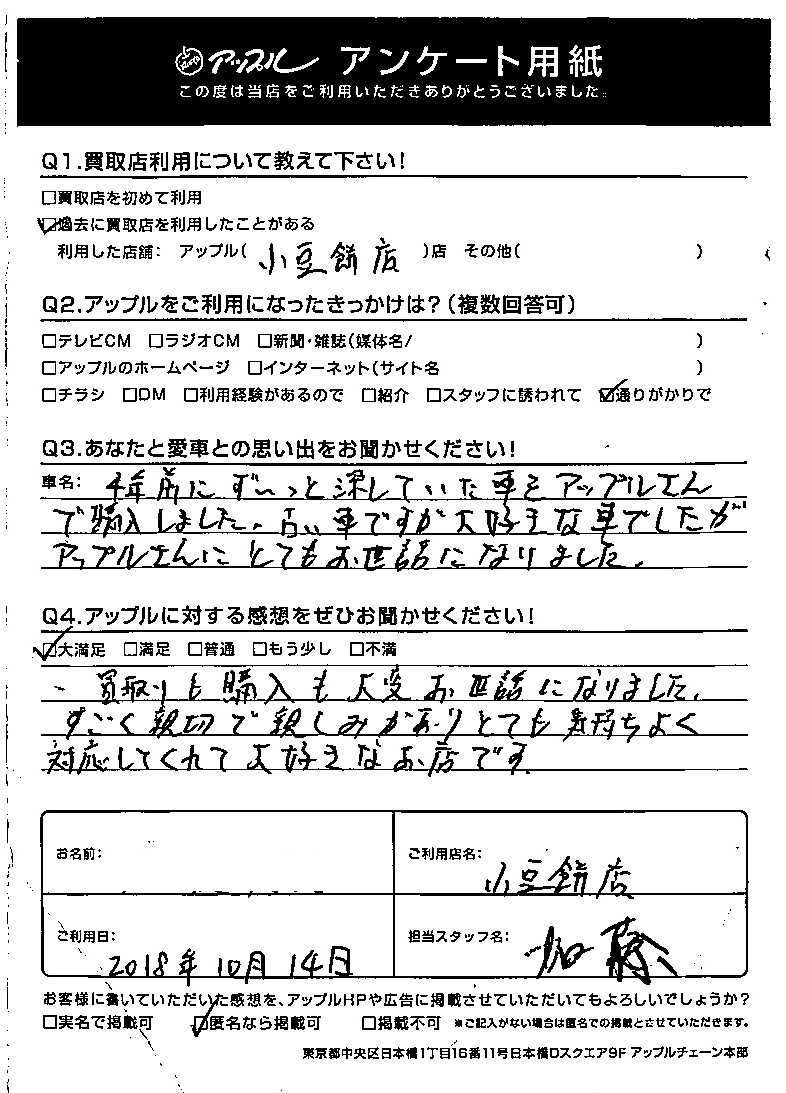 アップル アンケート用紙
この度は当店をご利用いただきありがとうございました。
Q1.買取店利用について教えて下さい!
□買取店を初めて利用
☑過去に買取店を利用したことがある
利用した店舗: アップル(小豆餅店)店 その他( )
Q2.アップルをご利用になったきっかけは?(複数回答可)
□テレビCM □ラジオCM □新聞・雑誌(媒体名/ )
□アップルのホームページ □インターネット(サイト名 )
□チラシ □DM □利用経験があるので □紹介 □スタッフに誘われて ☑通りがかりで
Q3.あなたと愛車との思い出をお聞かせください!
車名: 4年前にずぃっと探していた車をアップルさん
で購入しました。古い車ですが大好きな車でしたが
アップルさんにとてもお世話になりました。
Q4.アップルに対する感想をぜひお聞かせください!
☑大満足 □満足 □普通 □もう少し □不満
買取りも購入も大変お世話になりました。
すごく親切で親しみがありとても気持ちよく
対応してくれて大好きなお店です。
お名前:
ご利用店名: 小豆餅店
ご利用日: 2018年10月14日
担当スタッフ名: 加藤
お客様に書いていただいた感想を、アップルHPや広告に掲載させていただいてもよろしいでしょうか?
□実名で掲載可 ☑匿名なら掲載可 □掲載不可 *ご記入がない場合は匿名での掲載とさせていただきます。
東京都中央区日本橋1丁目16番11号日本橋Dスクエア9F アップルチェーン本部